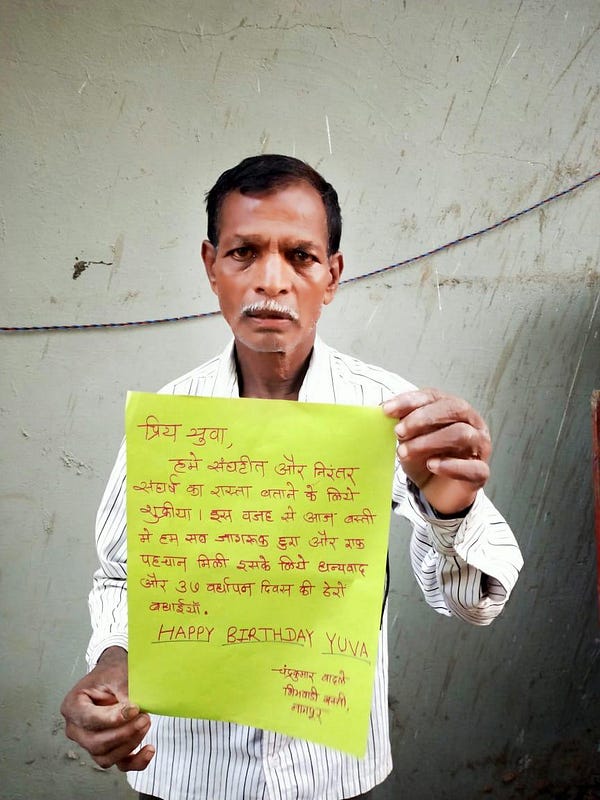 प्रिय युवा,
हमे संघटीत और निरंतर
संघर्ष का रास्ता बताने के लिये
शुक्रीया। इस वजह से आज बस्ती
मे हम सब जागरूक हुए और एक
पहचान मिली इसके लिये धन्यवाद
और ३७ वर्धापन दिवस की ढेरो
बधाईयाँ.
HAPPY BIRTHDAY YUVA
चंद्रकुमार वादले
भिमवाडी बस्ती,
नागपूर